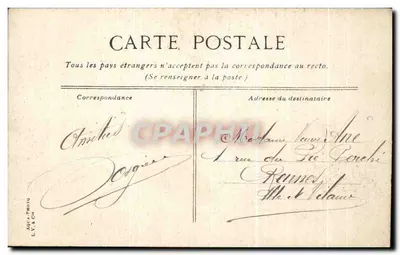 CARTE POSTALE
Tous les pays étrangers n'acceptent pas la correspondance au recto.
(Se renseigner à la poste)
Correspondance
Adresse du destinataire
Amitiés
Madame Veuve Ané
1 rue du Pré Perché
Rennes
Ille et Vilaine
CPAPHIL